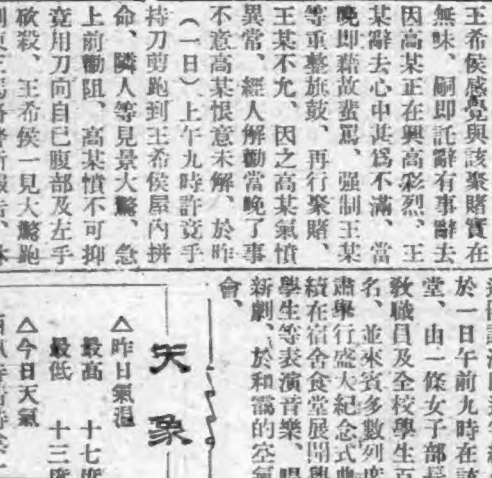 王希侯感覺與該聚賭實在
無味、嗣即託辭有事辭去
因高某正在興高彩烈、王
某辭去心中甚爲不滿、當
晚即藉故辱罵、强制王某
等重整旗鼓、再行聚賭、
王某不允、因之高某氣憤
異常、經人解勸當晚了事
不意高某恨意未解、於昨
(一日)上午九時許竟手
持刀剪跑到王希侯屋內拼
命、隣人等見景大驚、急
上前勸阻、高某憤不可抑
竟用刀向自己腹部及左手
砍殺、王希侯一見大驚跑
於一日午前九時在該
堂、由一條女子部長
敎職員及全校學生百
名、並來賓多數列席
肅舉行盛大紀念式典
績在宿舍食堂展開學
學生等表演音樂、唱
新劇、於和靄的空氣
會、
天象
△昨日氣溫
最高 十七度
最低 十三度
△今日天氣